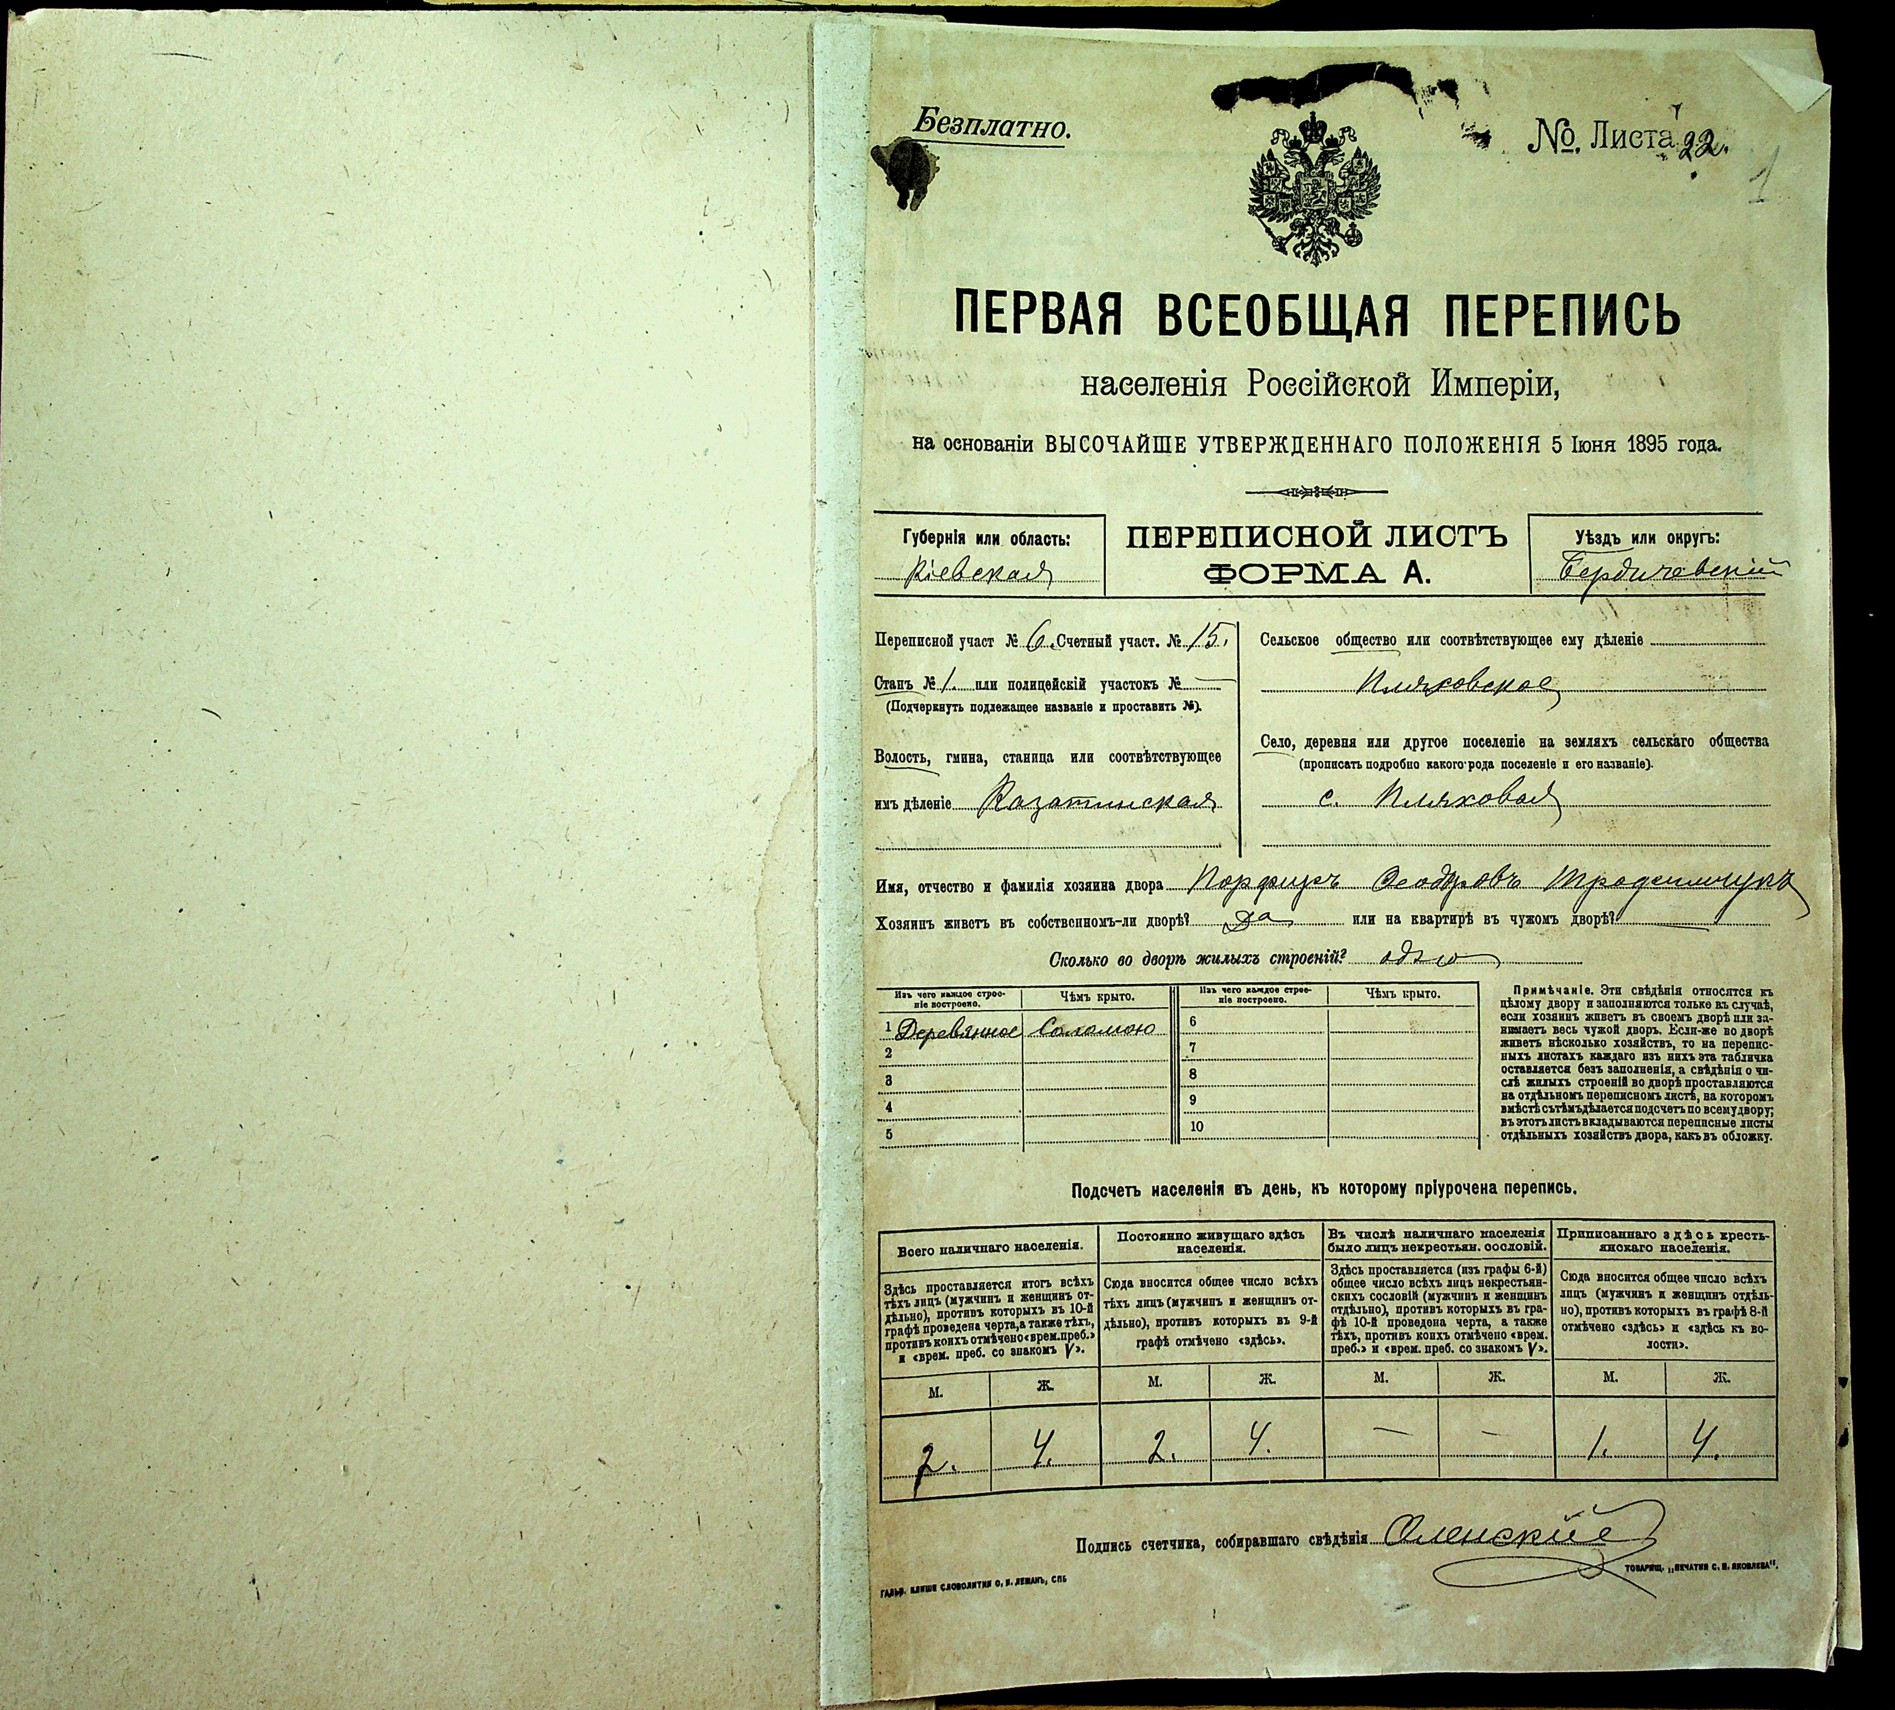 Безплатно.
№. Листа 22.
1
ПЕРВАЯ ВСЕОБЩАЯ ПЕРЕПИСЬ
населенія Россійской Имперіи,
на основаніи ВЫСОЧАЙШЕ УТВЕРЖДЕННАГО ПОЛОЖЕНІЯ 5 Іюня 1895 года.
Губернія или область:
Кіевская
ПЕРЕПИСНОЙ ЛИСТЪ
ФОРМА А.
Уѣздъ или округъ:
Бердичевскій
Переписной участ № 6. Счетный участ. № 15.
Станъ № 1. или полицейскій участокъ № —
(Подчеркнуть подлежащее названіе и проставить №).
Волость, гмина, станица или соотвѣтствующее
имъ дѣленіе Казатинская
Сельское общество или соотвѣтствующее ему дѣленіе
Пляховское
Село, деревня или другое поселеніе на земляхъ сельскаго общества
(прописать подробно какого рода поселеніе и его названіе).
с. Пляховая
Имя, отчество и фамилія хозяина двора Порфиръ Ѳеодоровъ
Хозяинъ живетъ въ собственномъ-ли дворѣ? да или на квартирѣ въ чужомъ дворѣ? —
Сколько во дворѣ жилыхъ строеній? одно
Изъ чего каждое строе-
ніе построено.
Чѣмъ крыто.
Изъ чего каждое строе-
ніе построено.
Чѣмъ крыто.
1 Деревянное Соломою
2
3
4
5
6
7
8
9
10
Примѣчаніе. Эти свѣдѣнія относятся къ
цѣлому двору и заполняются только въ случаѣ,
если хозяинъ живетъ въ своемъ дворѣ или за-
нимаетъ весь чужой дворъ. Если-же во дворѣ
живетъ нѣсколько хозяйствъ, то на перепис-
ныхъ листахъ каждаго изъ нихъ эта табличка
оставляется безъ заполненія, а свѣдѣнія о чи-
слѣ жилыхъ строеній во дворѣ проставляются
на отдѣльномъ переписномъ листѣ, на которомъ
вмѣстѣ съ тѣмъ дѣлается подсчетъ по всему двору;
въ этотъ листъ вкладываются переписные листы
отдѣльныхъ хозяйствъ двора, какъ въ обложку.
Подсчетъ населенія въ день, къ которому пріурочена перепись.
Всего наличнаго населенія.
Здѣсь проставляется итогъ всѣхъ
тѣхъ лицъ (мужчинъ и женщинъ от-
дѣльно), противъ которыхъ въ 10-й
графѣ проведена черта, а также тѣхъ,
противъ коихъ отмѣчено «врем. преб.»
и «врем. преб. со знакомъ V».
Постоянно живущаго здѣсь
населенія.
Сюда вносится общее число всѣхъ
тѣхъ лицъ (мужчинъ и женщинъ от-
дѣльно), противъ которыхъ въ 9-й
графѣ отмѣчено «здѣсь».
Въ числѣ наличнаго населенія
было лицъ некрестьян. сословій.
Здѣсь проставляется (изъ графы 6-й)
общее число всѣхъ лицъ некрестьян-
скихъ сословій (мужчинъ и женщинъ
отдѣльно), противъ которыхъ въ гра-
фѣ 10-й проведена черта, а также
тѣхъ, противъ коихъ отмѣчено «врем.
преб.» и «врем. преб. со знакомъ V».
Приписаннаго здѣсь кресть-
янскаго населенія.
Сюда вносится общее число всѣхъ
лицъ (мужчинъ и женщинъ отдѣль-
но), противъ которыхъ въ графѣ 8-й
отмѣчено «здѣсь» и «здѣсь къ во-
лости».
М. Ж. М. Ж. М. Ж. М. Ж.
2. 4. 2. 4. — — 1. 4.
Подпись счетчика, собиравшаго свѣдѣнія Оленскій
ГАЛЬВ. КЛИШЕ СЛОВОЛИТНИ О. И. ЛЕМАНЪ, СПБ
ТОВАРИЩ. „ПЕЧАТНЯ С. П. ЯКОВЛЕВА".